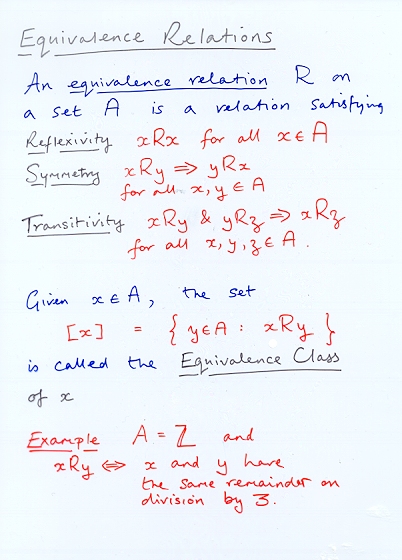 Equivalence Relations
An equivalence relation R on
a set A is a relation satisfying
Reflexivity xRx for all x ∈ A
Symmetry xRy ⇒ yRx
for all x, y ∈ A
Transitivity xRy & yRz ⇒ xRz
for all x, y, z ∈ A.
Given x ∈ A, the set
[x] = { y ∈ A : xRy }
is called the Equivalence Class
of x
Example A = ℤ and
xRy ⇔ x and y have
the same remainder on
division by 3.